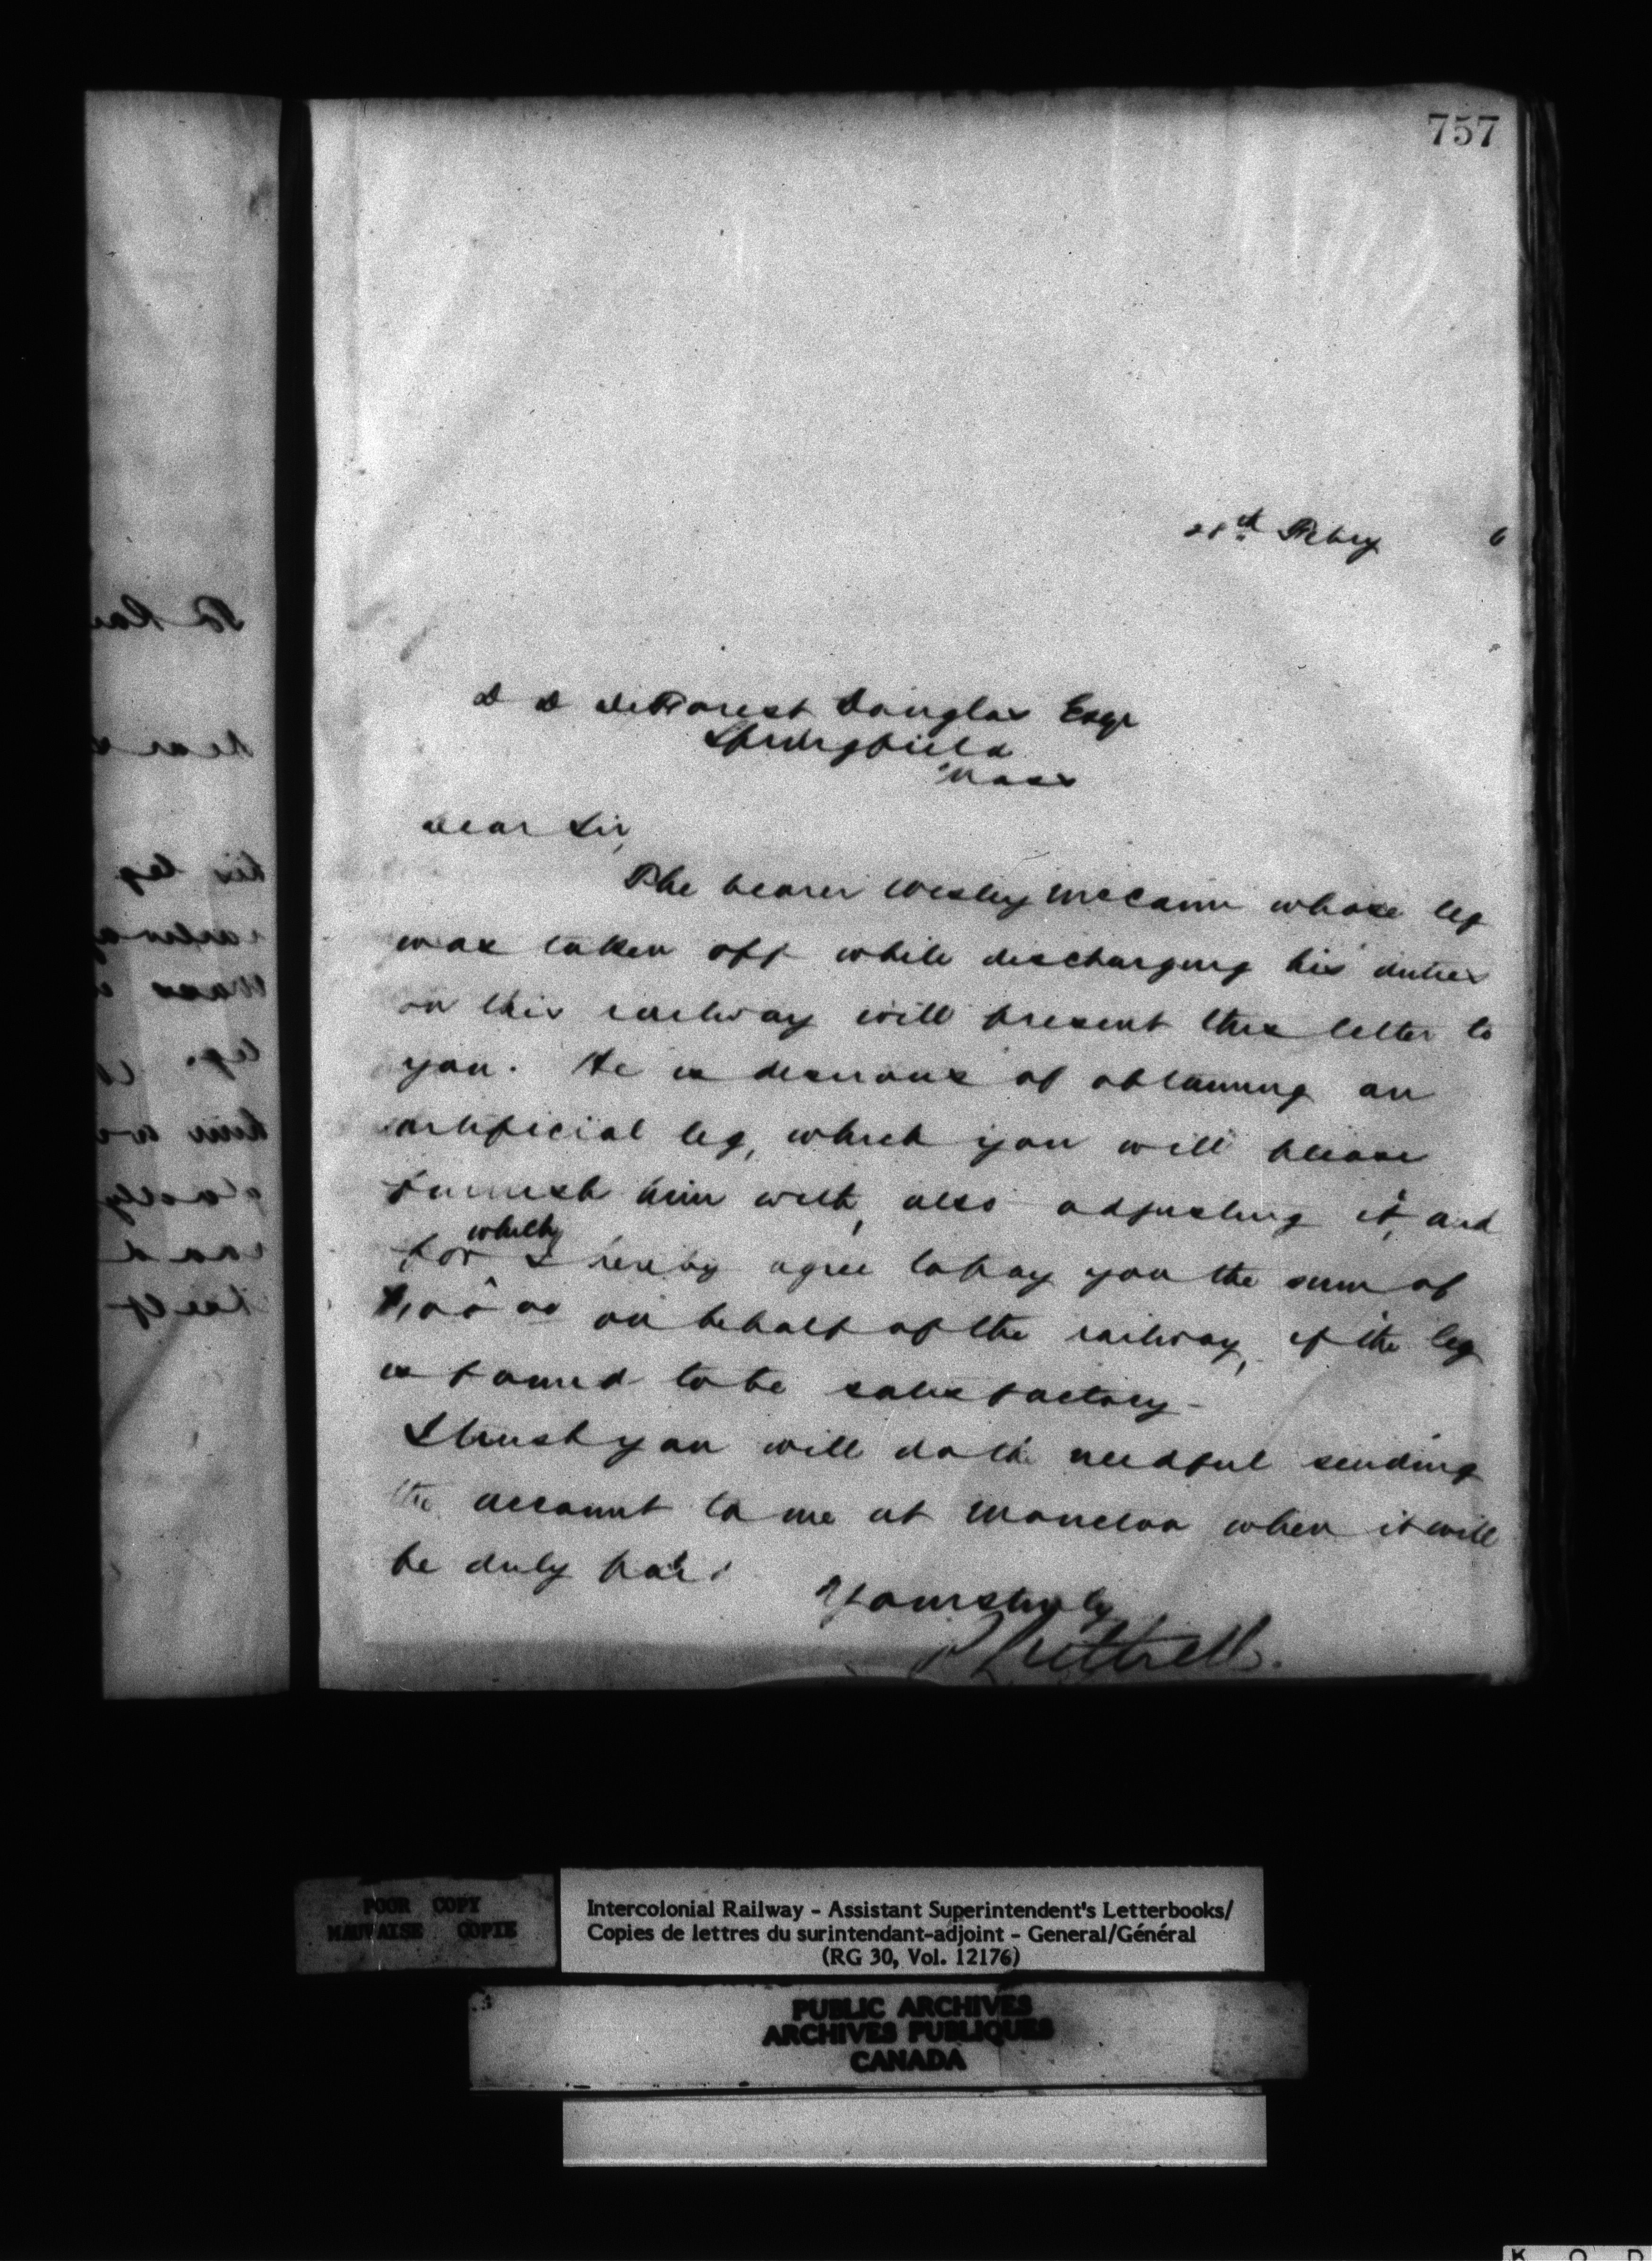 757
28th Febry 6
D D DeForest Douglas Esqr
Springfield
Mass
Dear Sir,
The bearer Wesley McCann whose leg
was taken off while discharging his duties
on this railway will present this letter to
you. He is desirous of obtaining an
artificial leg, which you will please
furnish him with, also adjusting it, and
for which I hereby agree to pay you the sum of
$100 00 on behalf of the railway, if the leg
is found to be satisfactory -
I trust you will do the needful sending
the account to me at Moncton when it will
be duly paid
Yours truly
Luttrell
POOR COPY
MAUVAISE COPIE
Intercolonial Railway - Assistant Superintendent's Letterbooks/
Copies de lettres du surintendant-adjoint - General/Général
(RG 30, Vol. 12176)
PUBLIC ARCHIVES
ARCHIVES PUBLIQUES
CANADA
K O D